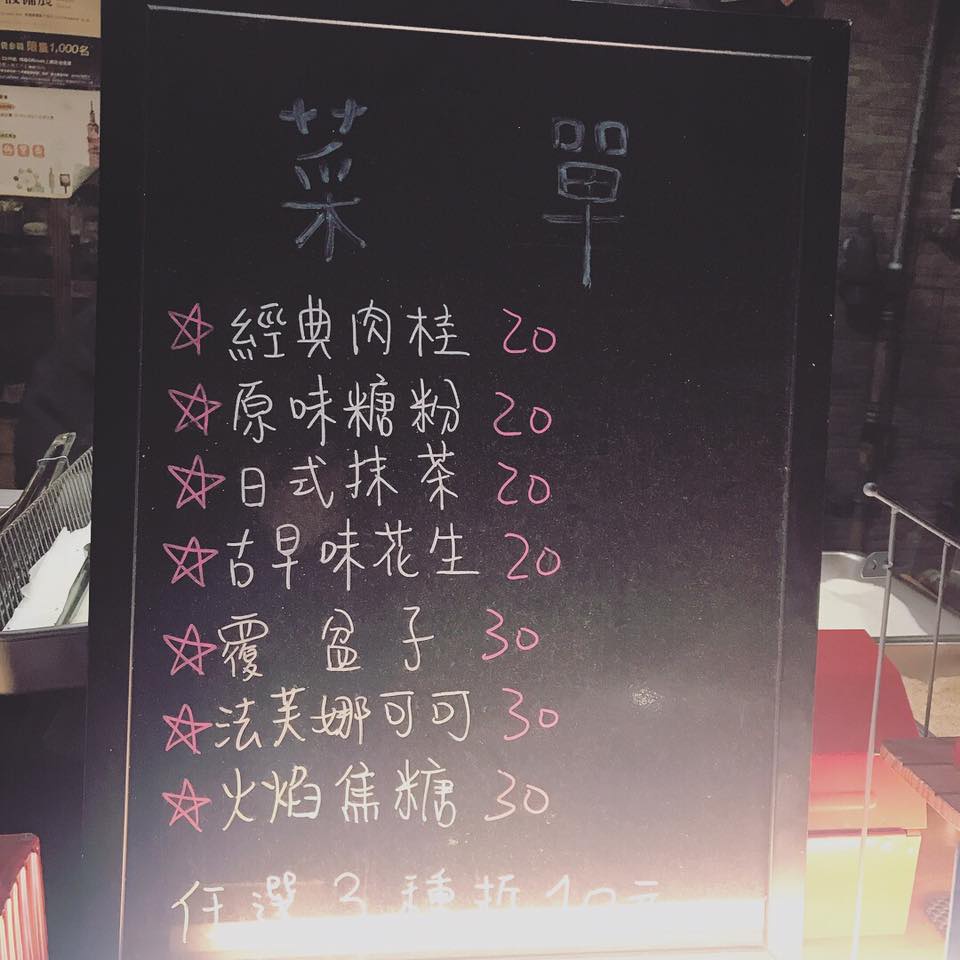 限量1,000名
菜單
☆經典肉桂 20
☆原味糖粉 20
☆日式抹茶 20
☆古早味花生 20
☆覆盆子 30
☆法芙娜可可 30
☆火焰焦糖 30
任選3種折10元